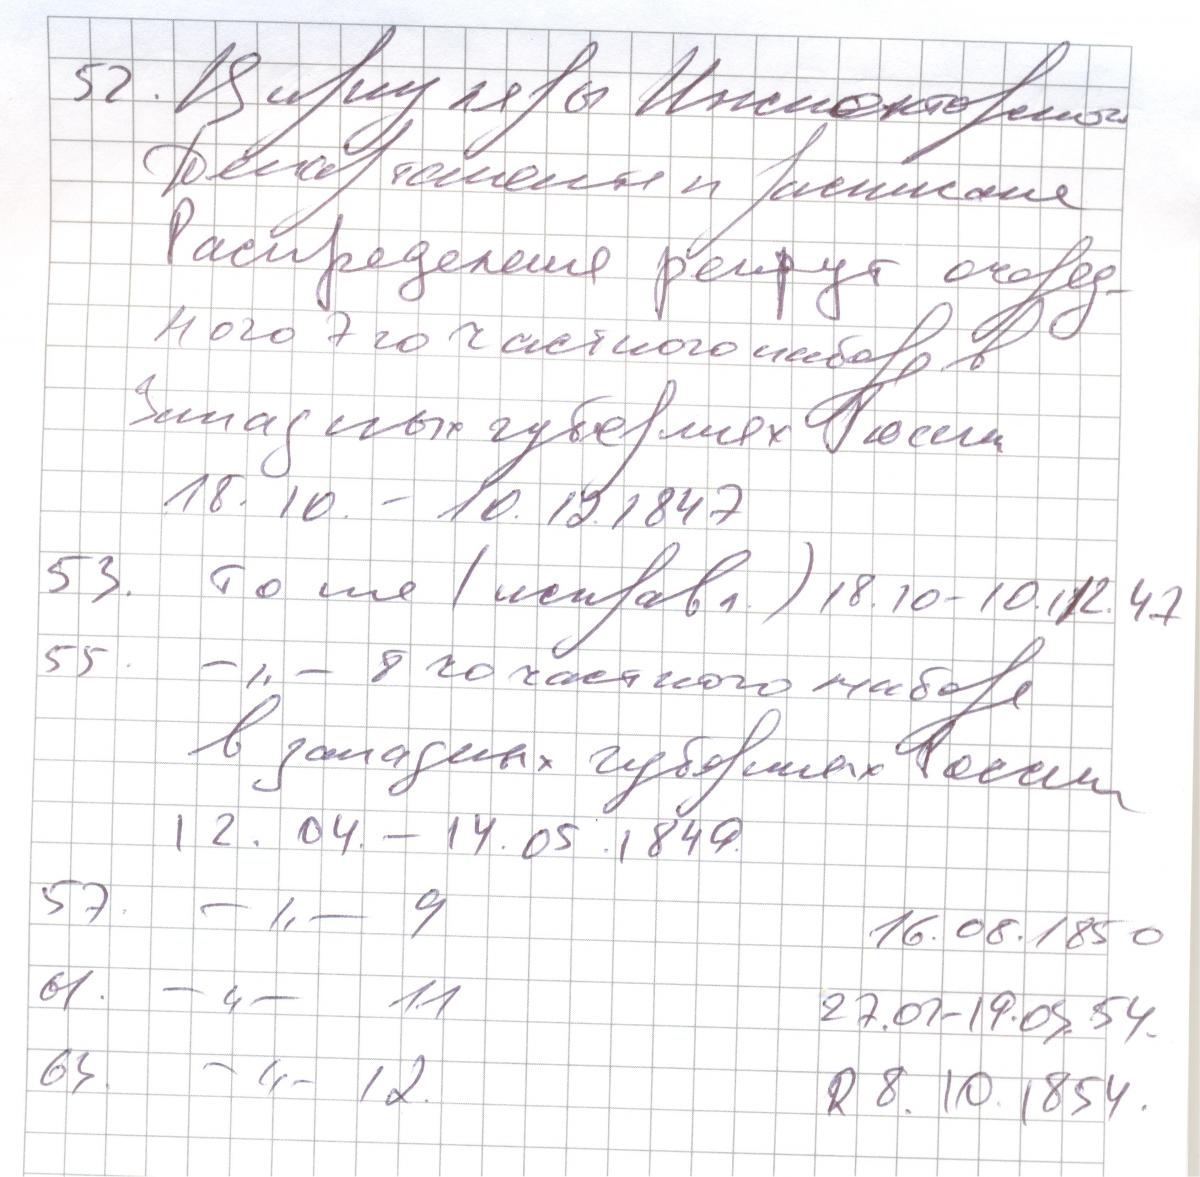 52. Циркуляры Инспекторского
Департамента и расписание
Распределение рекрут очеред-
ного 7го частного набора в
Западных губерниях России
18.10. - 10.12.1847
53. То же (исправл.) 18.10-10.12.47
55. -„- 8го частного набора
в западных губерниях России
12.04.-14.05.1849.
57. -„- 9 16.08.1850
61. -„- 11 27.01-19.03.54.
63. -„- 12. 28.10.1854.